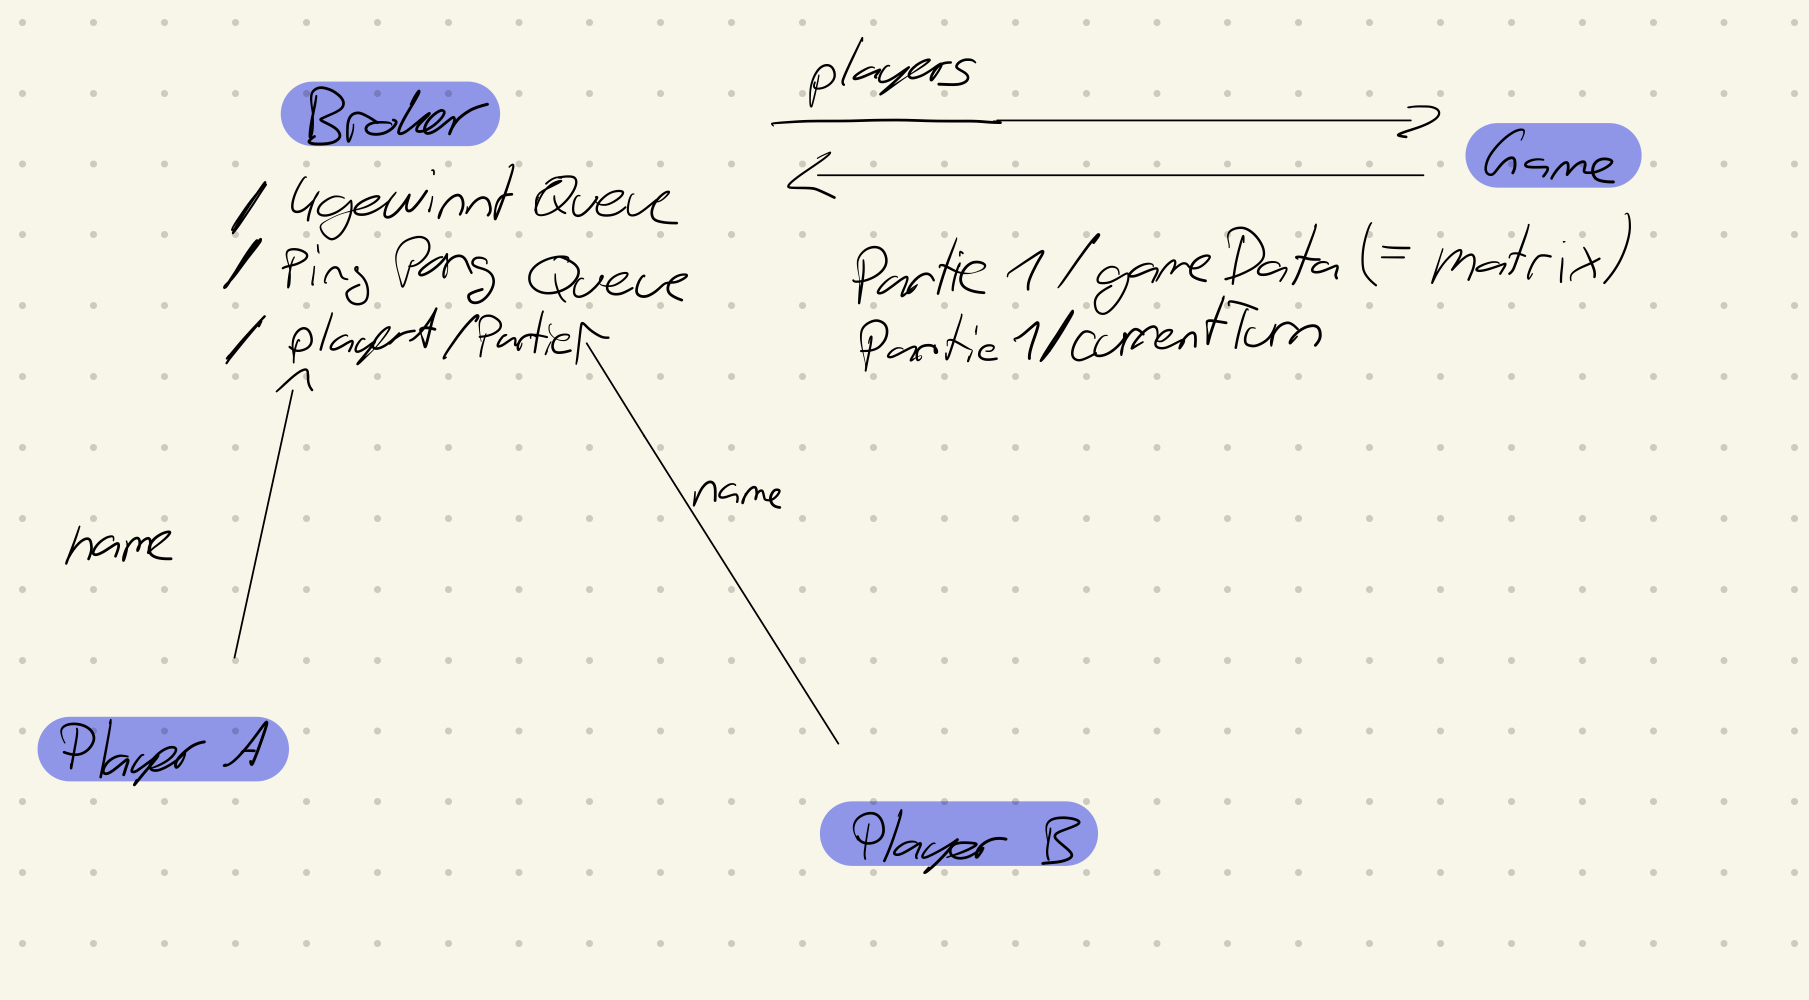 players
Broker
Game
/ 4gewinnt Queue
/ Ping Pong Queue
/ playerA/Partie1
Partie 1/gameData (= matrix)
Partie 1/currentTurn
name
name
Player A
Player B